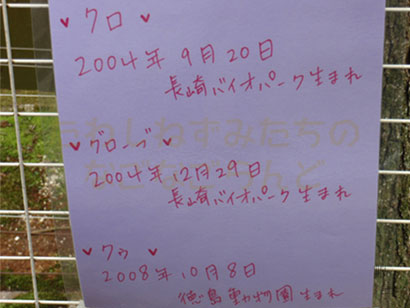 ♥ クロ ♥
2004年 9月20日
長崎バイオパーク生まれ
♥ グローブ ♥
2004年12月29日
長崎バイオパーク生まれ
♥ クゥ ♥
2008年10月8日
徳島動物園生まれ